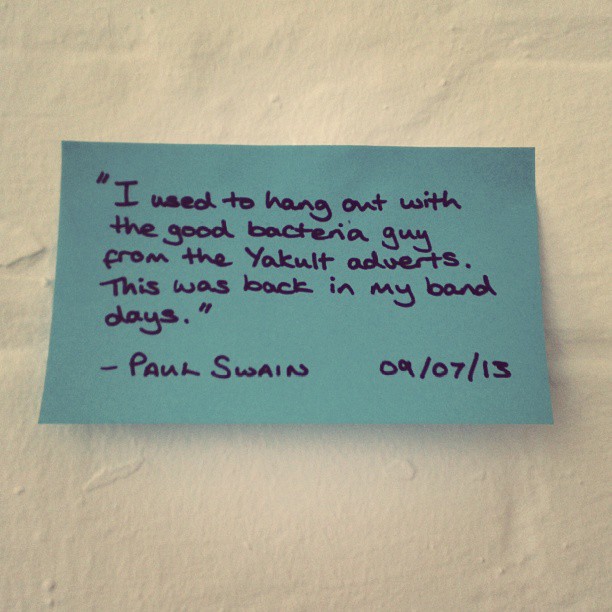 "I used to hang out with
the good bacteria guy
from the Yakult adverts.
This was back in my band
days."
- PAUL SWAIN 09/07/13